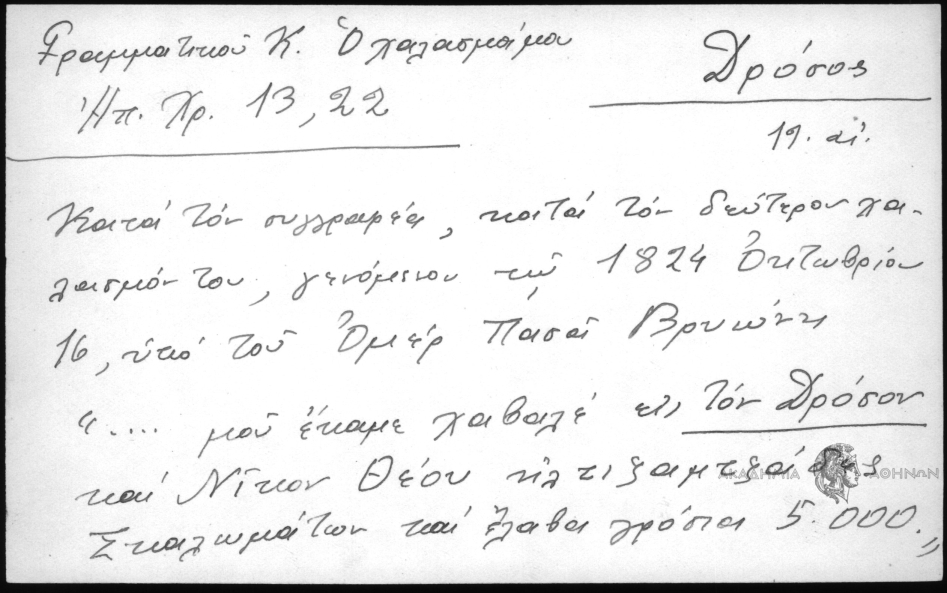 Γραμματικοῦ Κ. Ὁ χαλασμός μου
Ἠπ. Χρ. 13, 22
Δρόσος
19. αἰ.
Κατά τόν συγγραφέα, κατά τόν δεύτερον χα-
λασμόν του, γενόμενον τῷ 1824 Ὀκτωβρίου
16, ὑπό τοῦ Ὀμέρ Πασᾶ Βρυώνη
".... μοῦ ἔκαμε χαβαλέ εἰς τόν Δρόσον
καί Νῖκον Θέου
Σκαλωμάτων καί ἔλαβα γρόσια 5.000."
ΑΚΑΔΗΜΙΑ ΑΘΗΝΩΝ